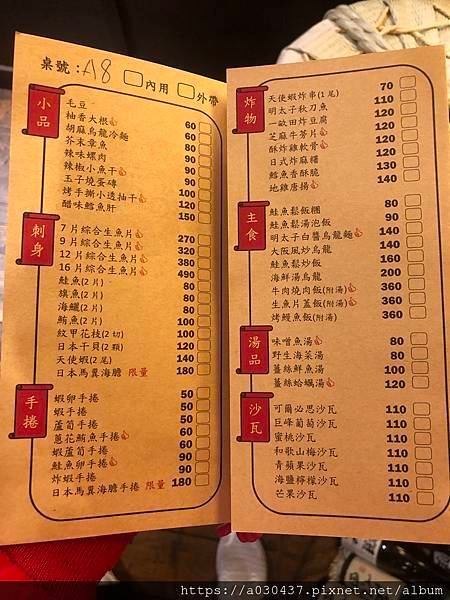 桌號：A8 內用 外帶
小品
毛豆 60
柚香大根 60
胡麻烏龍冷麵 80
芥末章魚 90
辣味螺肉 90
辣椒小魚干 90
玉子燒蛋磚 100
烤手撕小透抽干 120
醋味鱈魚肝 150
刺身
7片綜合生魚片 270
9片綜合生魚片 320
12片綜合生魚片 380
16片綜合生魚片 490
鮭魚(2片) 80
旗魚(2片) 80
海鱺(2片) 80
鮪魚(2片) 90
紋甲花枝(2切) 90
日本干貝(2顆) 120
天使蝦(2尾) 140
日本馬糞海膽 限量 180
手捲
蝦卵手捲 50
蝦手捲 50
蘆筍手捲 50
蔥花鮪魚手捲 60
蝦蘆筍手捲 60
鮭魚卵手捲 90
炸蝦手捲 90
日本馬糞海膽手捲 限量 180
炸物
天使蝦炸串(1尾) 70
明太子秋刀魚 110
一畝田炸豆腐 120
芝麻唐芳片 110
酥炸雞軟骨 120
日式炸麻糬 120
鱈魚香酥脆 130
地雞唐揚 140
主食
鮭魚鬆飯糰 80
鮭魚鬆湯泡飯 90
明太子白醬烏龍麵 140
大阪風炒烏龍 140
鮭魚鬆炒飯 160
海鮮湯烏龍 200
牛肉燒肉飯(附湯) 160
生魚片蓋飯(附湯) 360
烤鰻魚飯(附湯) 360
湯品
味噌魚湯 80
野生海菜湯 80
薑絲鮮魚湯 100
薑絲蛤蠣湯 120
沙瓦
可爾必思沙瓦 110
巨峰葡萄沙瓦 110
蜜桃沙瓦 110
和歌山梅沙瓦 110
青蘋果沙瓦 110
海鹽檸檬沙瓦 110
芒果沙瓦 110
https://a030437.pixnet.net/album